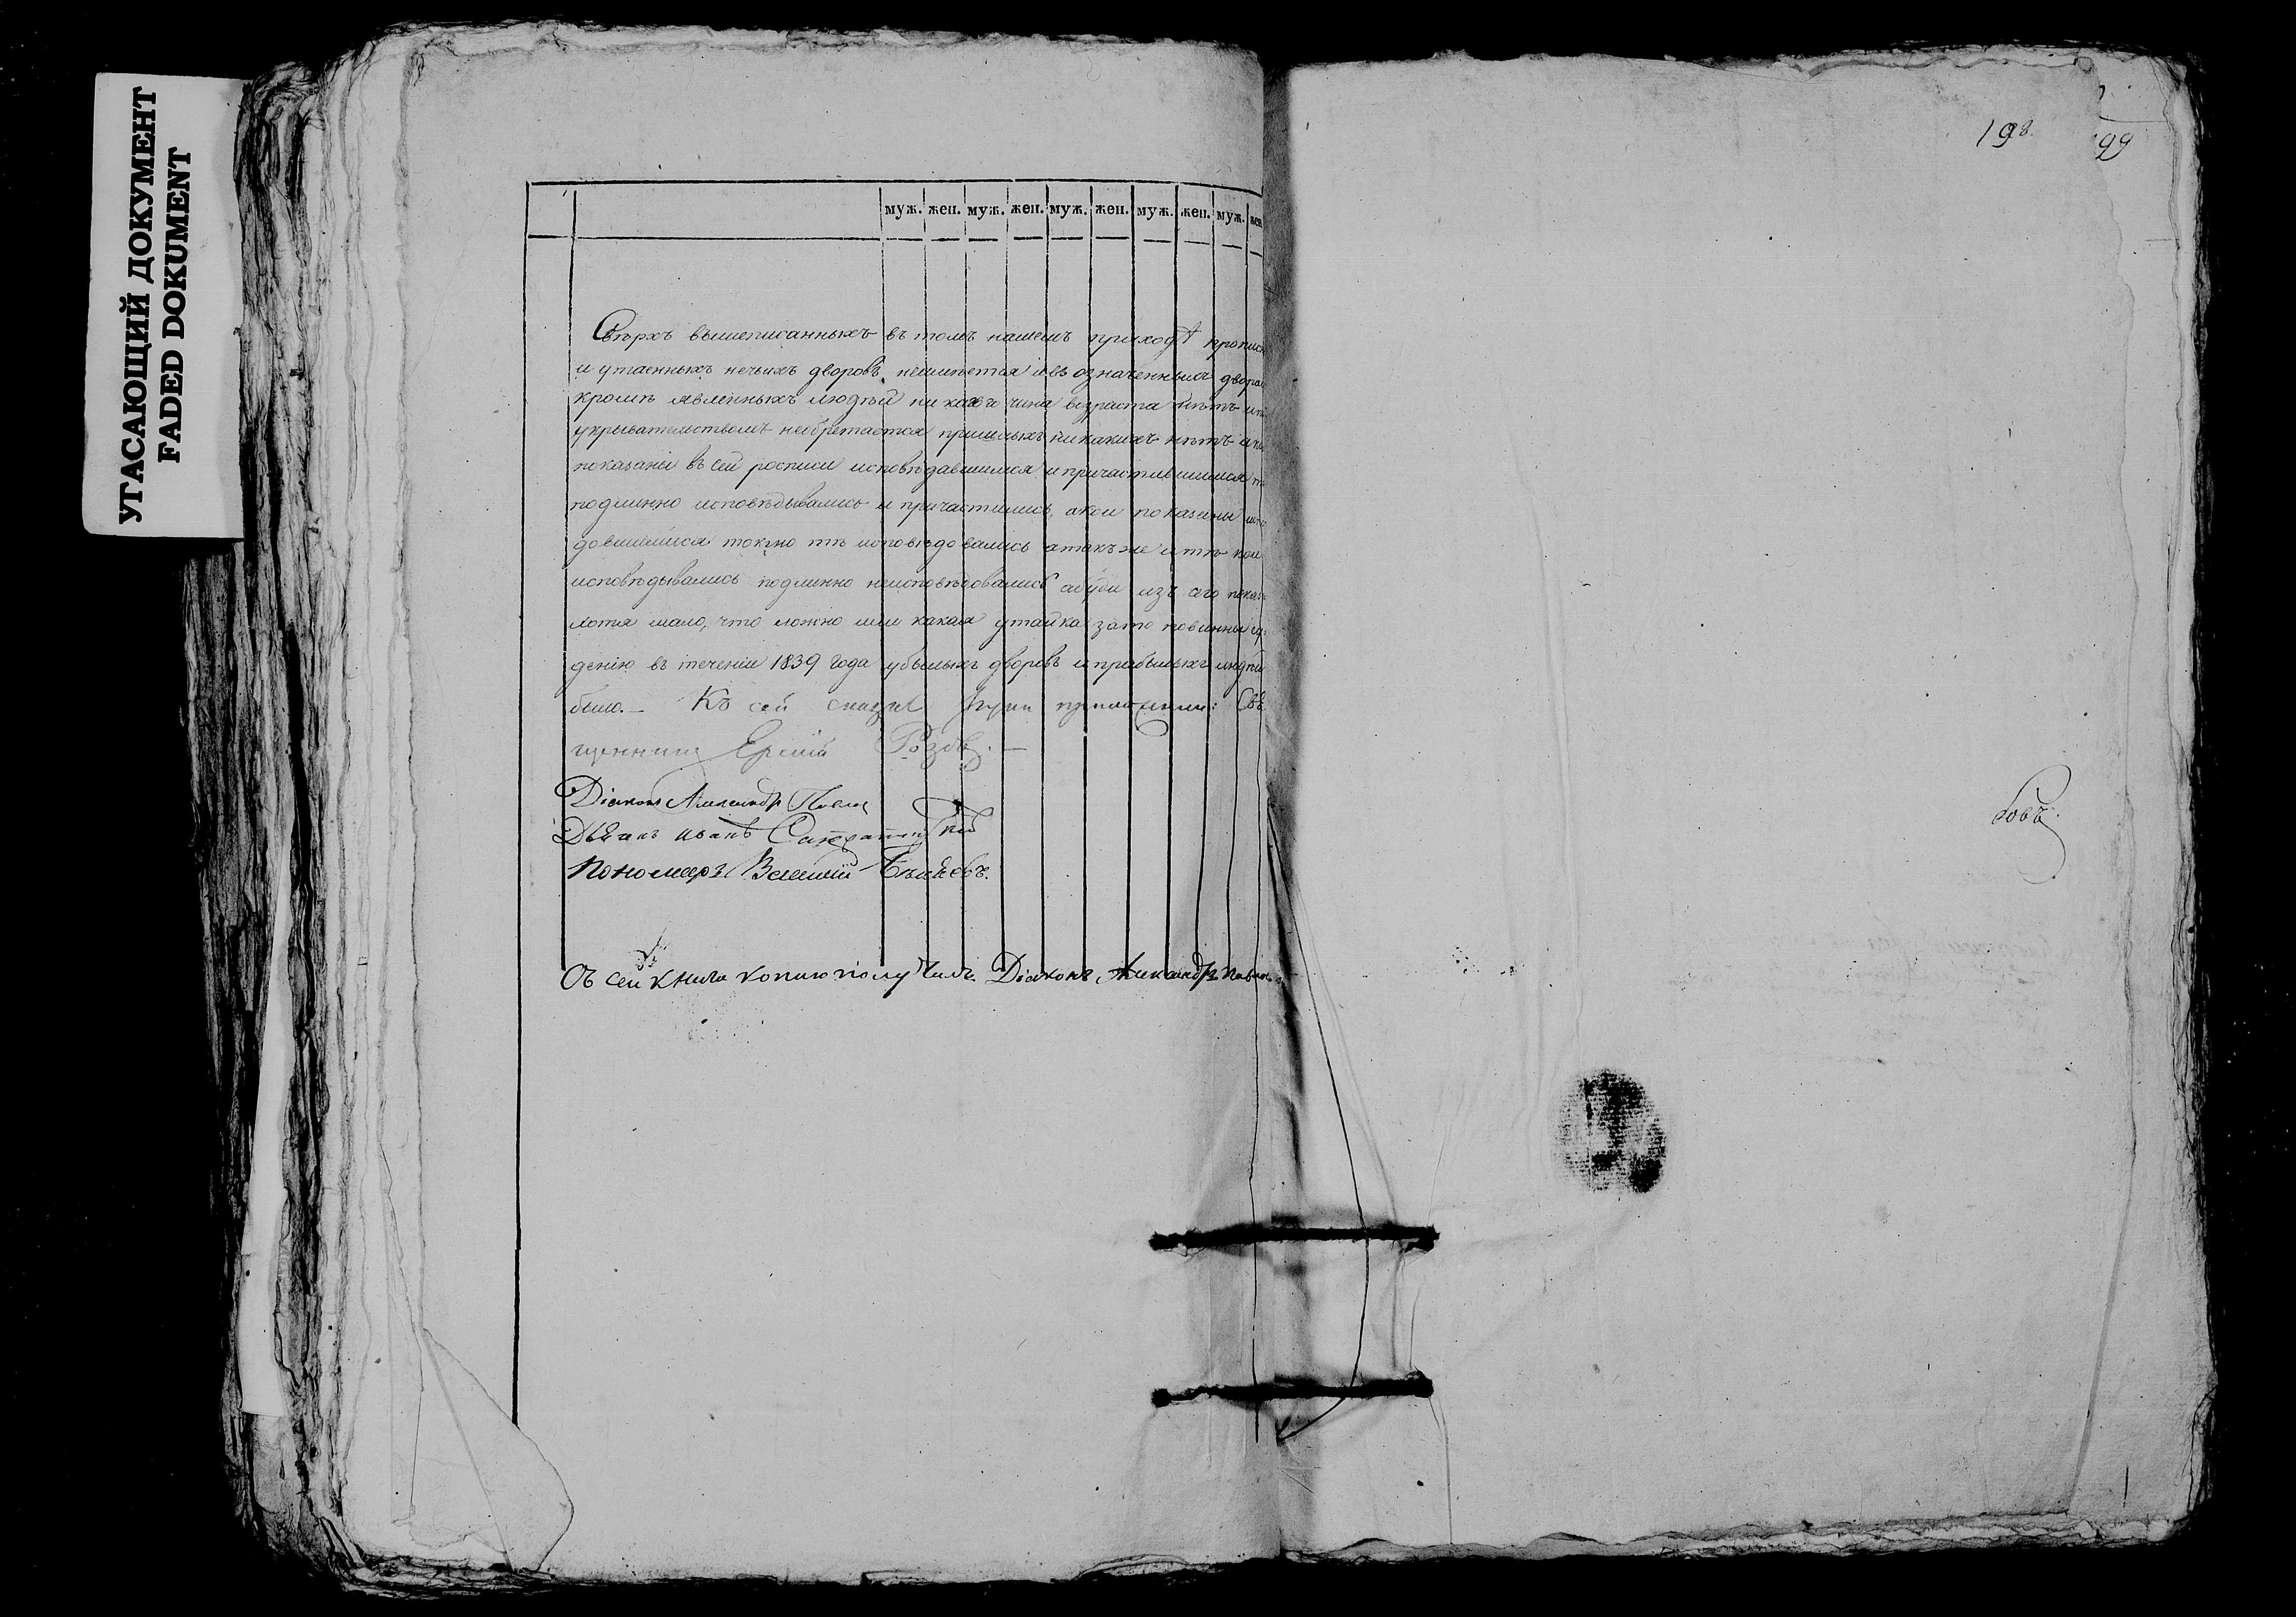 УТАСАЮЩИЙ ДОКУМЕНТ
FADED DOKUMENT
198.
99
муж. жен. муж. жен. муж. жен. муж. жен. муж. жен
Сверхъ вышеписанныхъ въ томъ нашемъ приходѣ пропис
и утаенныхъ нечьихъ дворовъ неимѣется и въ означенныхъ двора
кромѣ явленныхъ людѣй чина возраста нѣтъ
укрывательствомъ необретается пришлыхъ никакихъ нѣтъ
показаны въ сей росписи исповѣдавшимися и причастившимися
подлинно исповѣдывались и причастились, а кои показаны
довшимися токмо тѣ исповѣдовались а такъ же и тѣ кои
исповѣдывались подлинно неисповѣдовались изъ сего показ
хотя мало, что ложно или какая утайка зато повинны
денію въ теченіи 1839 года убылыхъ дворовъ и прибылыхъ людѣй
было. — Къ сей сказкѣ руки приложили: Свя
щенникъ Розовъ. —
Діаконъ Александръ Павл
Дьячекъ Иванъ
Пономарь Василій
бовъ.
Съ сей книги копию получилъ Діаконъ Александръ Павл